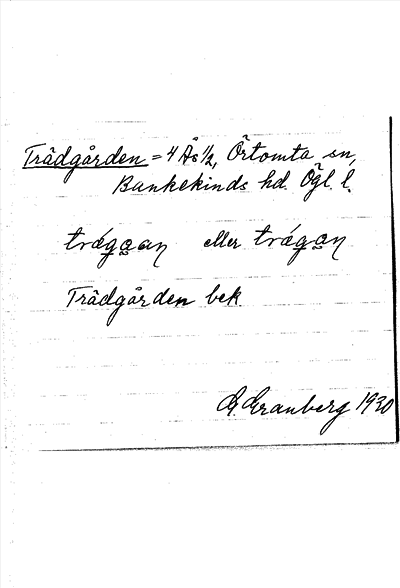 Trädgården = 4 Ås 1/2, Örtomta sn,
Bankekinds hd. Ögl. l.
eller
Trädgården bek.
G. Granberg 1930